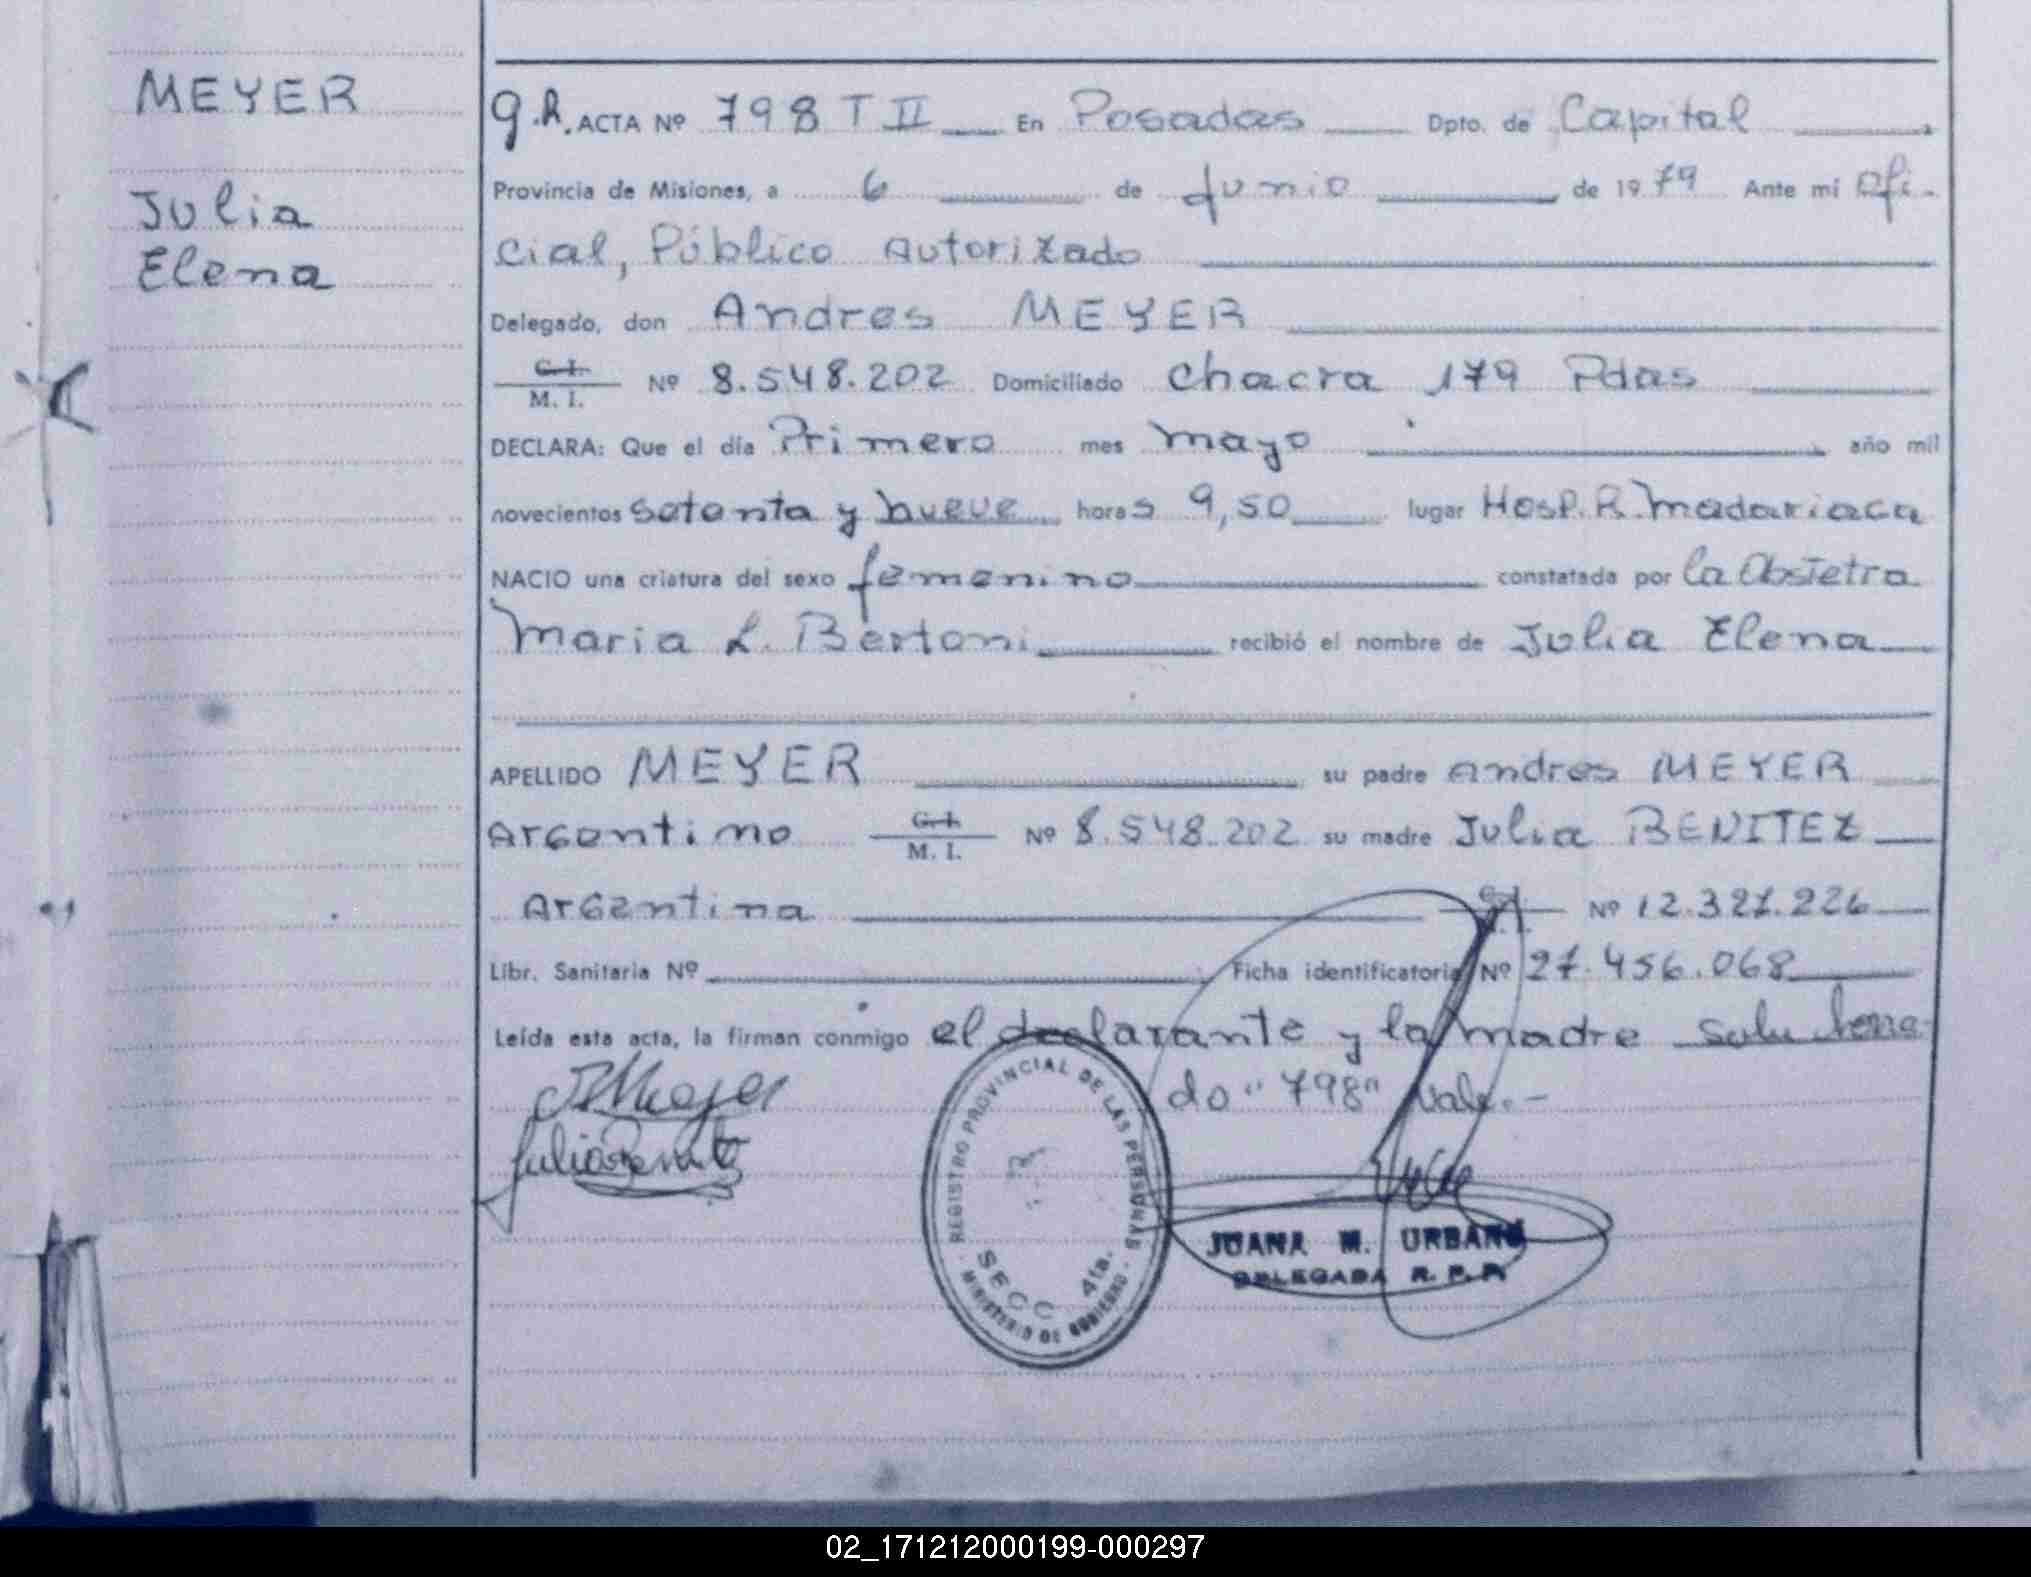 MEYER
Julia
Elena
g.R. ACTA Nº 798 T II En Posadas Dpto. de Capital
Provincia de Misiones, a 6 de Junio de 1979 Ante mí Ofi-
cial, Público Autorizado
Delegado, don Andres MEYER
C. I.
M. I. Nº 8.548.202 Domiciliado Chacra 179 Pdas
DECLARA: Que el día Primero mes mayo año mil
novecientos setenta y nueve horas 9,50 lugar Hosp. R. Madariaca
NACIO una criatura del sexo femenino constatada por la Obstetra
Maria L. Bertoni recibió el nombre de Julia Elena
APELLIDO MEYER su padre Andres MEYER
Argentino C. I. M. I. Nº 8.548.202 su madre Julia BENITEZ
Argentina C. I. M. I. Nº 12.327.226
Libr. Sanitaria Nº Ficha identificatoria Nº 27.456.068
Leída esta acta, la firman conmigo el declarante y la madre
do "798" Vale.-
Julia Benitez
REGISTRO PROVINCIAL DE LAS PERSONAS
SECC 4ta.
MINISTERIO DE GOBIERNO
JUANA M. URBANO
DELEGADA R. P. P.
02_171212000199-000297